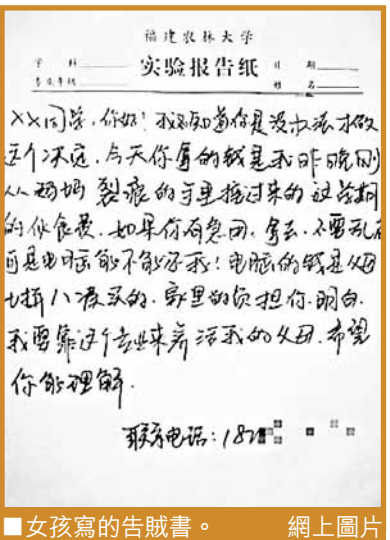 福建农林大学
学 科
实验报告纸
日 期
专业年级
姓 名
XX同学,你好!我知道你是没办法才做
这个决定,今天你拿的钱是我昨晚刚
从妈妈裂痕的手里接过来的这学期
的伙食费,如果你有急用,拿去,不要乱花
可是电脑能不能还我!电脑的钱是父母
七拼八凑买的,家里的负担你明白,
我要靠这个专业来养活我的父母,希望
你能理解.
联系电话:182
■女孩寫的告賊書。 網上圖片